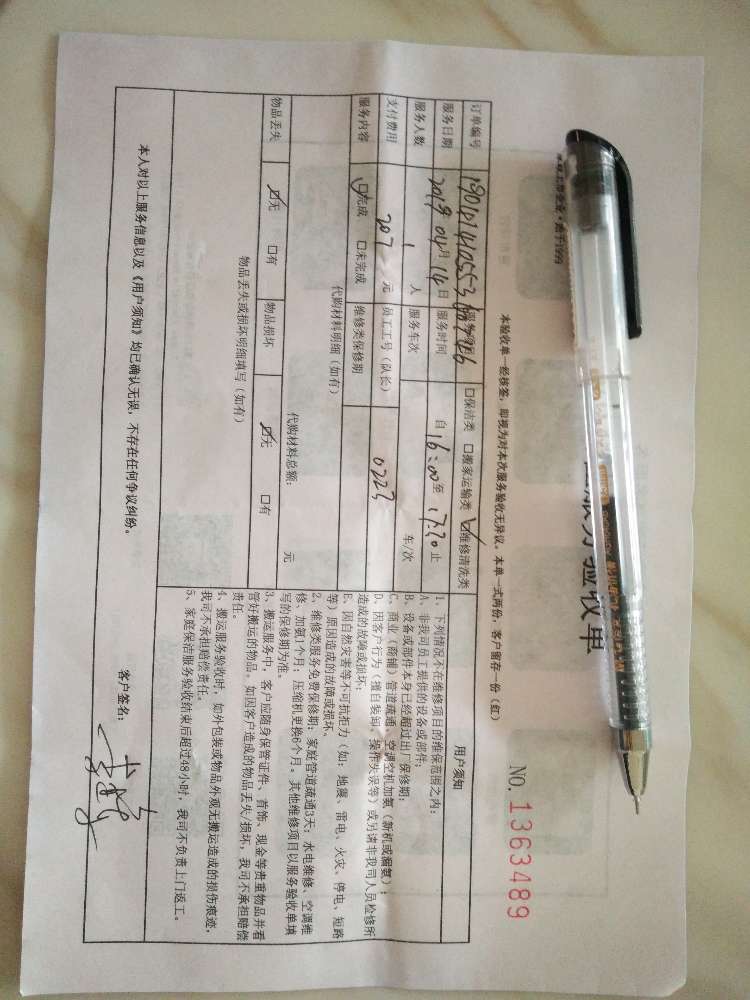 服务验收单
NO. 1363489
本验收单一经核签，即视为对本次服务验收无异议。本单一式两份，客户留存一份（红）
订单编号
□保洁类 □搬家运输类 ☑维修清洗类
服务日期 2019年04月14日 服务时间 自16:00至17:20止
服务人数 1 人 服务车次 车/次
支付费用 207 元 员工工号（队长） 0223
服务内容 ☑完成 □未完成 维修类保修期
代购材料明细（如有）
代购材料总额： 元
物品丢失 ☑无 □有 物品损坏 ☑无 □有
物品丢失或损坏明细填写（如有）
用户须知
1、下列情况不在维修项目的维保范围之内：
A、非我司员工提供的设备或部件；
B、设备或部件本身已经超过出厂保修期；
C、商业（商铺）管道疏通、空调空机加氨（新机或漏氨）；
D、因客户行为（擅自装卸、操作失误等）或另请非我司人员检修所
造成的故障或损坏；
E、因自然灾害等不可抗拒力（如：地震、雷电、火灾、停电、短路
等）原因造成的故障或损坏。
2、维修类服务免费保修期：家庭管道疏通3天；水电维修、空调维
修、加氨1个月；压缩机更换6个月。其他维修项目以服务验收单填
写的保修期为准。
3、搬运服务中，客户应随身保管证件、首饰、现金等贵重物品并看
管好搬运的物品。如因客户造成的物品丢失/损坏，我司不承担赔偿
责任。
4、搬运服务验收时，如外包装或物品外观无搬运造成的损伤痕迹，
我司不承担赔偿责任。
5、家庭保洁服务验收结束后超过48小时，我司不负责上门返工。
本人对以上服务信息以及《用户须知》均已确认无误，不存在任何争议纠纷。
客户签名：